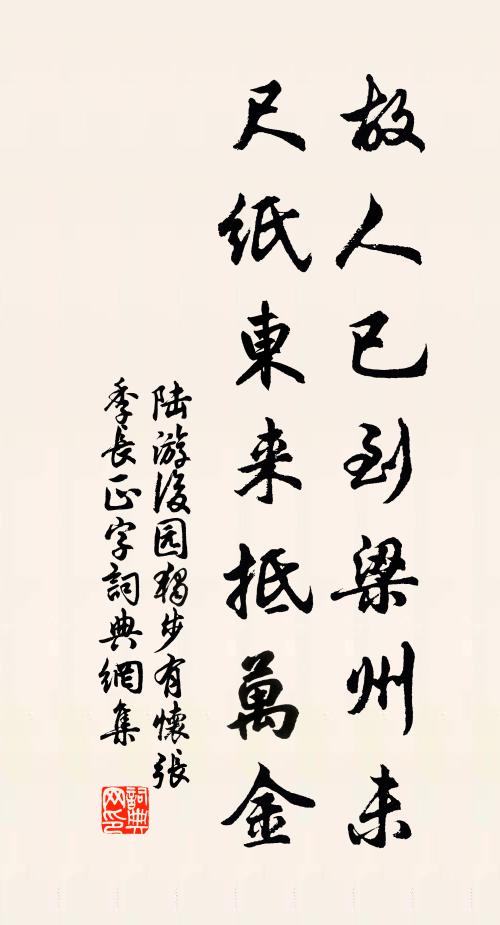 故人已到梁州未
尺紙東来抵萬金
陆游後园獨步有懷張
季長正字詞典網集
詞典网印